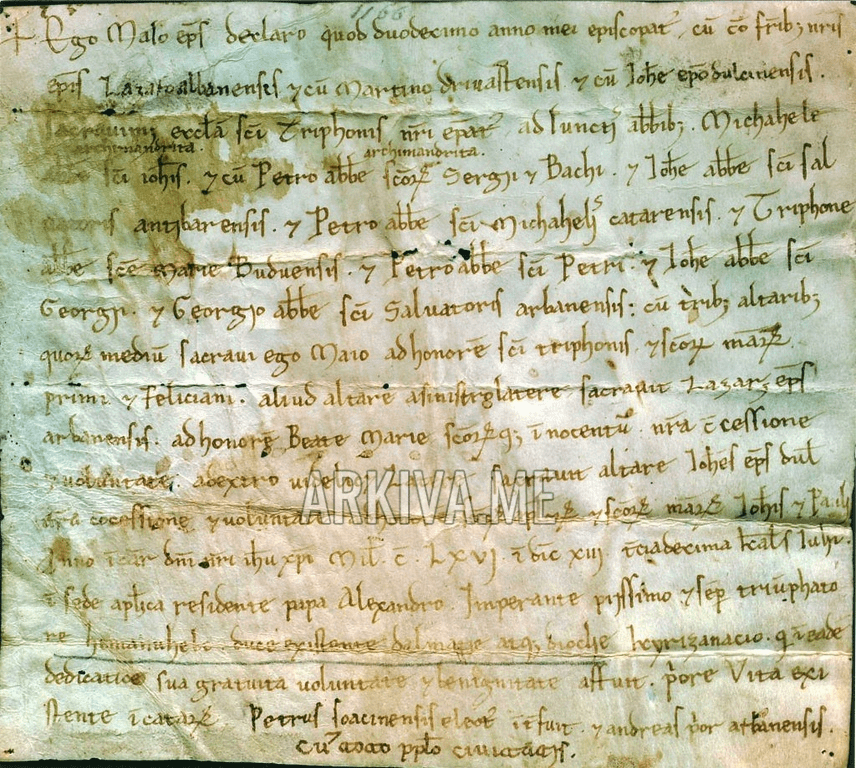 1166
+ Ego Maio eps declaro quod duodecimo anno mei episcopat, cu co frib; nris
epis Lazaro albanensis & cu Martino drivastensis & cu Iohe epo dulcinensis.
sacravim; eccla sci Triphonis nri epat adiunctis abbib; Michahele
archimandrita. archimandrita.
abbe sci iohis. & cu Petro abbe scor Sergii & Bachi. & Iohe abbe sci sal
vatoris antibarensis. & Petro abbe sci Michahelis catarensis. & Triphone
abbe sce Marie Buduensis. & Petro abbe sci Petri. & Iohe abbe sci
Georgii. & Georgio abbe sci Salvatoris arbanensis: cu trib; altarib;
quor mediu sacravi ego Maio ad honore sci triphonis. & scor mar
primi & feliciani. aliud altare a sinistro latere sacravit Lazar; eps
arbanensis. ad honore Beate Marie scorq; inocentu. nra ccessione
& voluntate. a dextro v altare Iohes eps dul
nra cocessione & voluntate & scor mar Iohis & Pauli
Anno icar dni nri ihu xpi Mil. c. LXVI idic xiii. kals Iulii.
i sede aplica residente papa Alexandro. Imperante piissimo & sep triuphato
re hemanuhele. duce existente dalmacie atq; dioclie kyrizanacio. q i eade
dedicatioe sua gratuita voluntate & benignitate affuit. priore Vita exi
stente i catar. Petrus soacinensis elect itfuit. & andreas prior arbanensis.
Cu toto pplo civitatis.
ARKIVA.ME